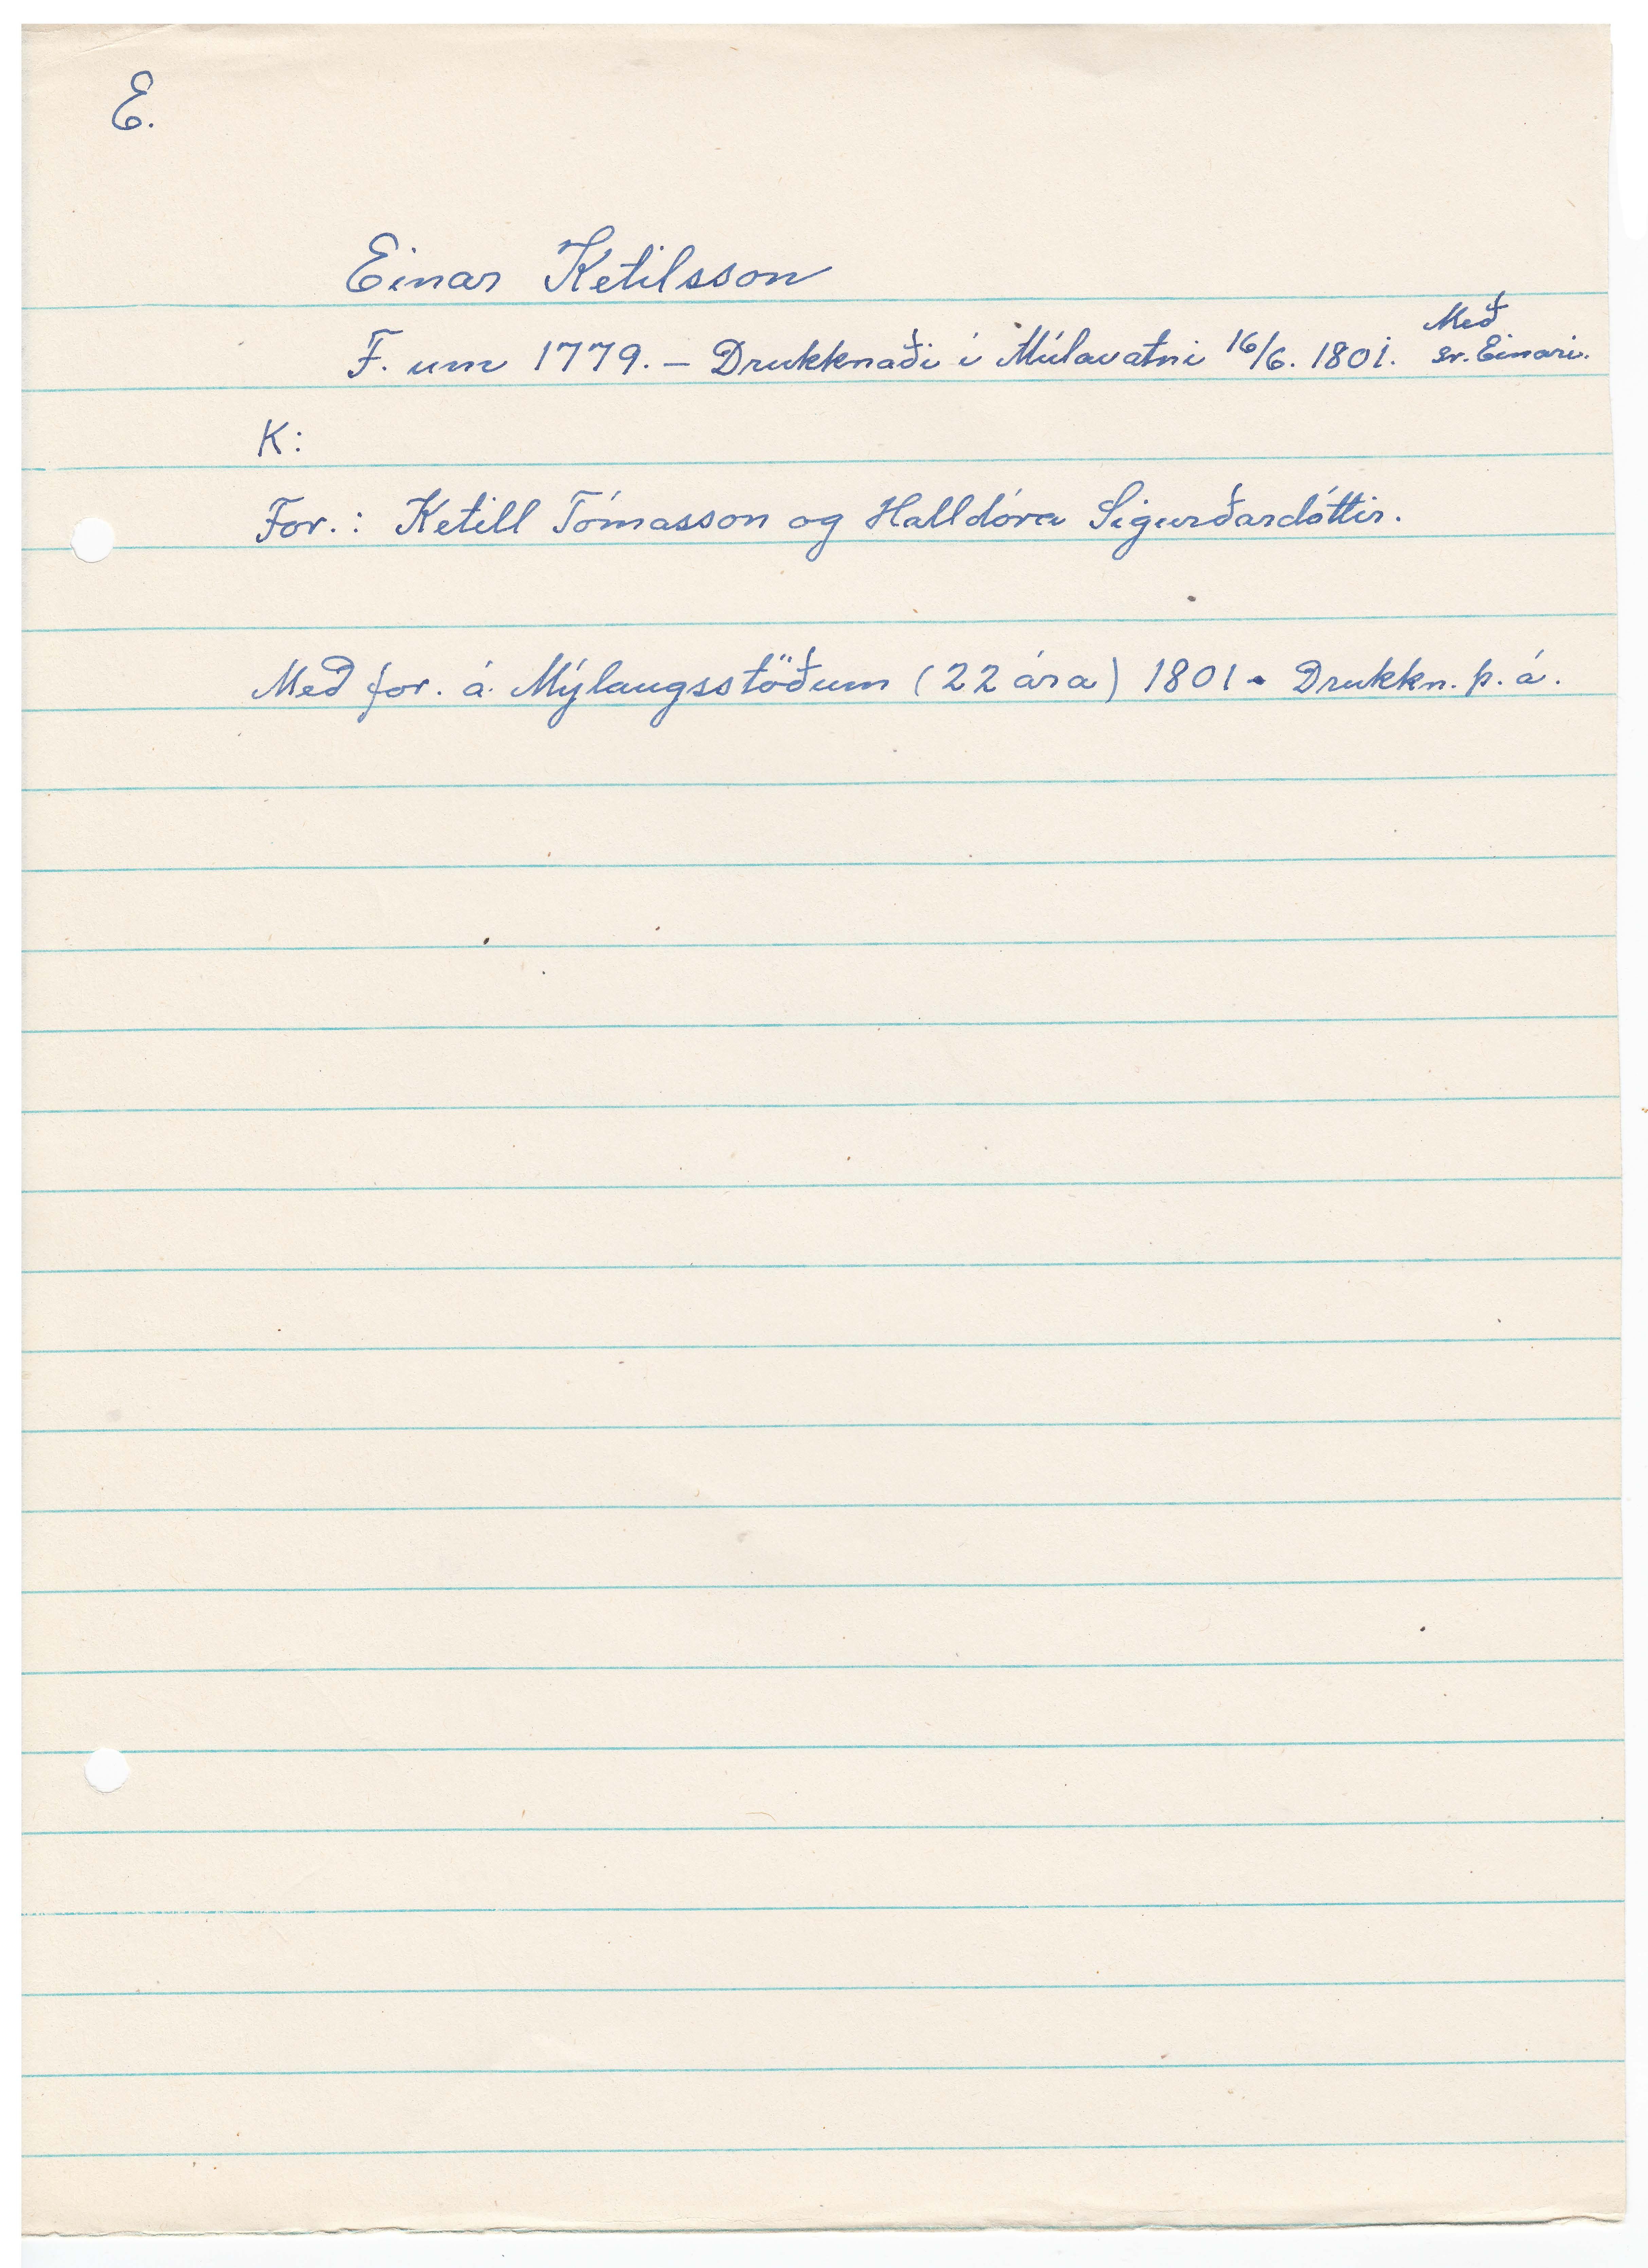 E.
Einar Ketilsson
F. um 1779. – Drukknaði í Múlavatni 16/6. 1801. Með
sr. Einari.
K:
For.: Ketill Tómasson og Halldóra Sigurðardóttir.
Með for. á Mýlaugsstöðum (22 ára) 1801. Drukkn. þ. á.